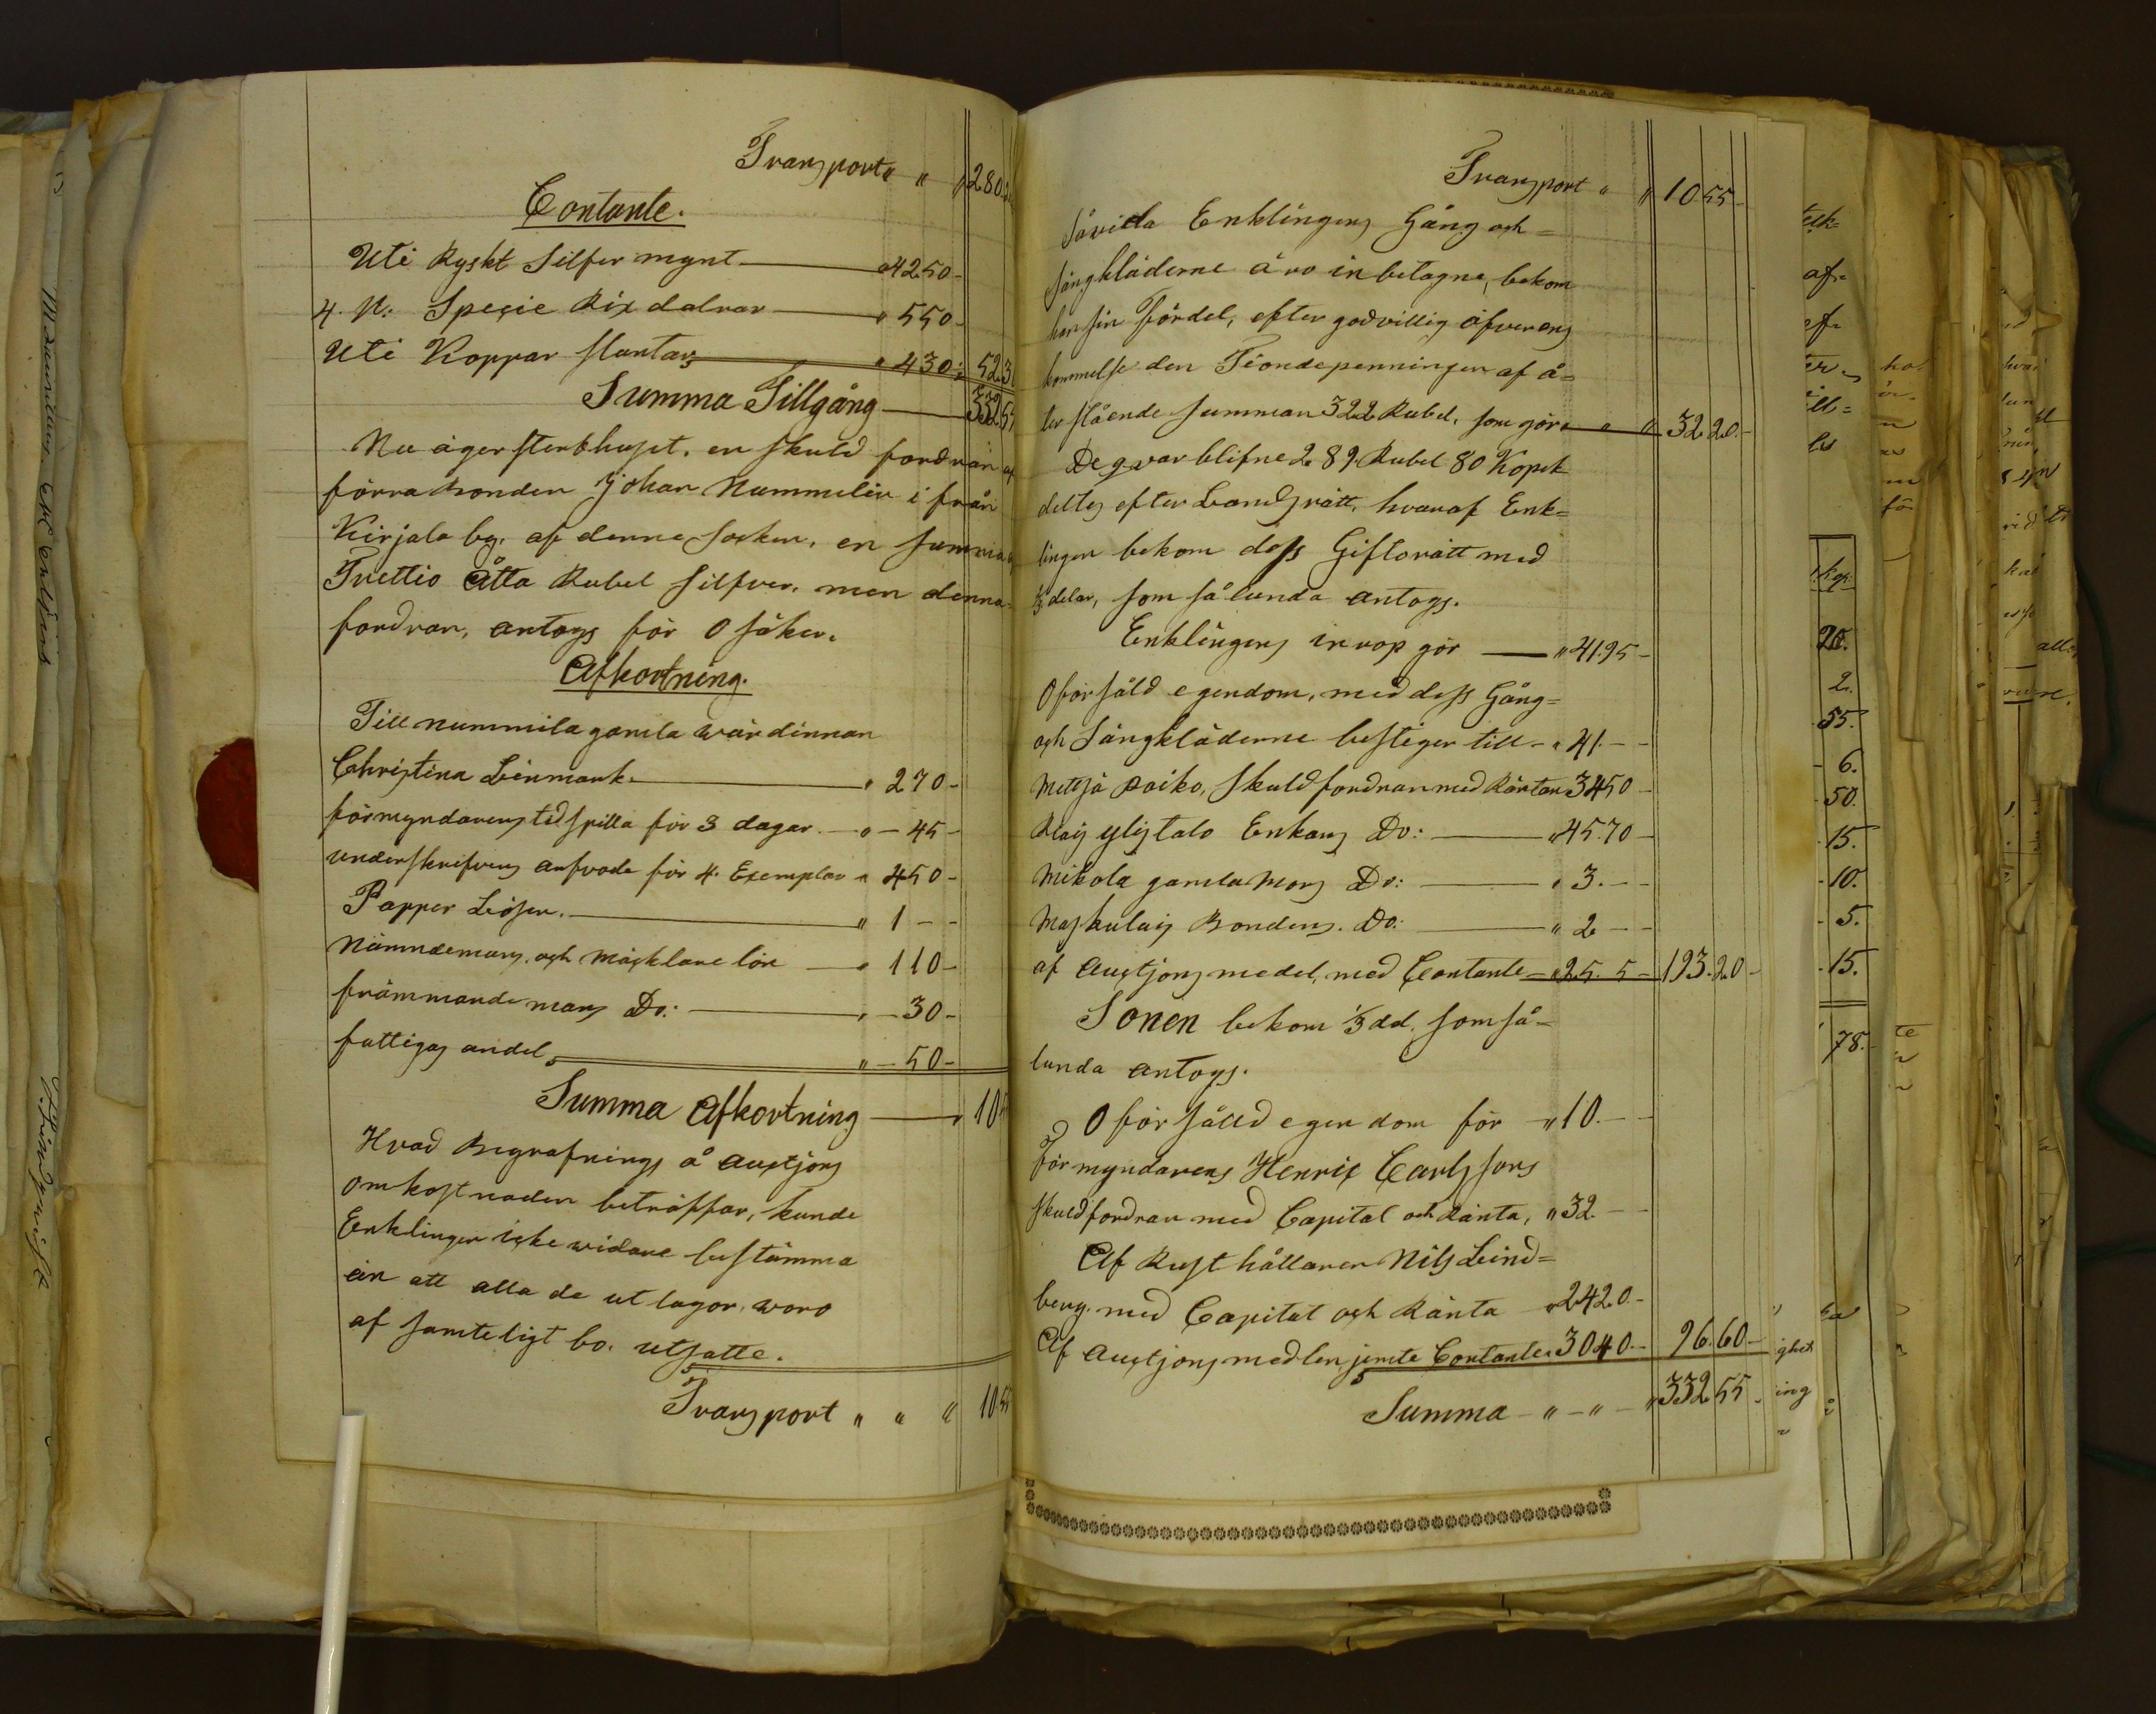 Transport " " " 280.
Contante.
Uti Ryskt Silfver mynt — " 42 50 -
4. st: Speçie Rix dalrar — " 5 50 -
Uti Koppar slantar — " 4 30 - 52 3
Summa Tillgång — 332 55
Nu äger sterbhuset, en skuld fordran af
förra Bonden Johan Nummelin i från
Kirjala by. af denna socken, en summa
Trettio Åtta Rubel silfver, men denna
fordran, antogs för Osäker.
Afkortning.
Till nummila gamla wärdinnan
Christina Leinmark — " 2 70 -
förmyndarens tidspilla för 3 dagar — " - 45 -
underskrifvens arfvode för 4. Exemplar " 4 50 -
Papper Lösen. — " 1 - -
Nämndemans, och mäcklare lön — " 1 10 -
främmande mans Do: — " - 30 -
fattigas andel — " - 50 -
Summa Afkortning — " 10
Hvad Begrafnings å Auctjons
omkostnaden beträffar, kunde
Enklingen icke widare bestämma
än att alla de utlagor, woro
af samteligt bo. utsatte.
Transport " " " 10 55
Transport " " 10 55 -
såvida Enklingens Gång och =
sängkläderne äro inbetagne, bekom
han sin Fördel, efter godvillig öfverens
kommelse den Tiondepenningen af å=
ter stående summan 322 Rubel, som göra " " 32 20 -
De qvarblifne 289 Rubel 80 Kopek
deltes efter Landsrätt, hvaraf Enk=
lingen bekom dess Giftorätt med
2/3 delar, som sålunda antogs.
Enklingens inrop gör — " 41. 95 -
Oförsåld egendom, med dess Gång=
och Sängkläderne bestiger till - " 41. - -
Mettjä Paiko, skuldfordran med Räntan 34 50 -
Klais ylistalo Enkans Do: — " 45. 70 -
Mikola gamla Mors Do: — " 3. - -
Maskulais Bondens. Do: — " 2 - -
af Auctjons medel, med Contante - " 25. 5 - 193. 20 -
Sonen bekom 1/3 del, som så=
lunda antogs.
Oförsålld egendom för - " 10. - -
Förmyndarens Henric Carlssons
skuldfordran med Capital och Ränta, " 32. - -
Af Rusthållaren Nils Lind=
berg. med Capital och Ränta " 24 20. -
Af Auctjons medlen jemte Contante " 30 40. - 96. 60 -
Summa - " - " - " 332 55 -
af=
ef=
kop:
20.
2.
55.
6.
50.
15.
10.
5.
15.
78.
ighet
ing